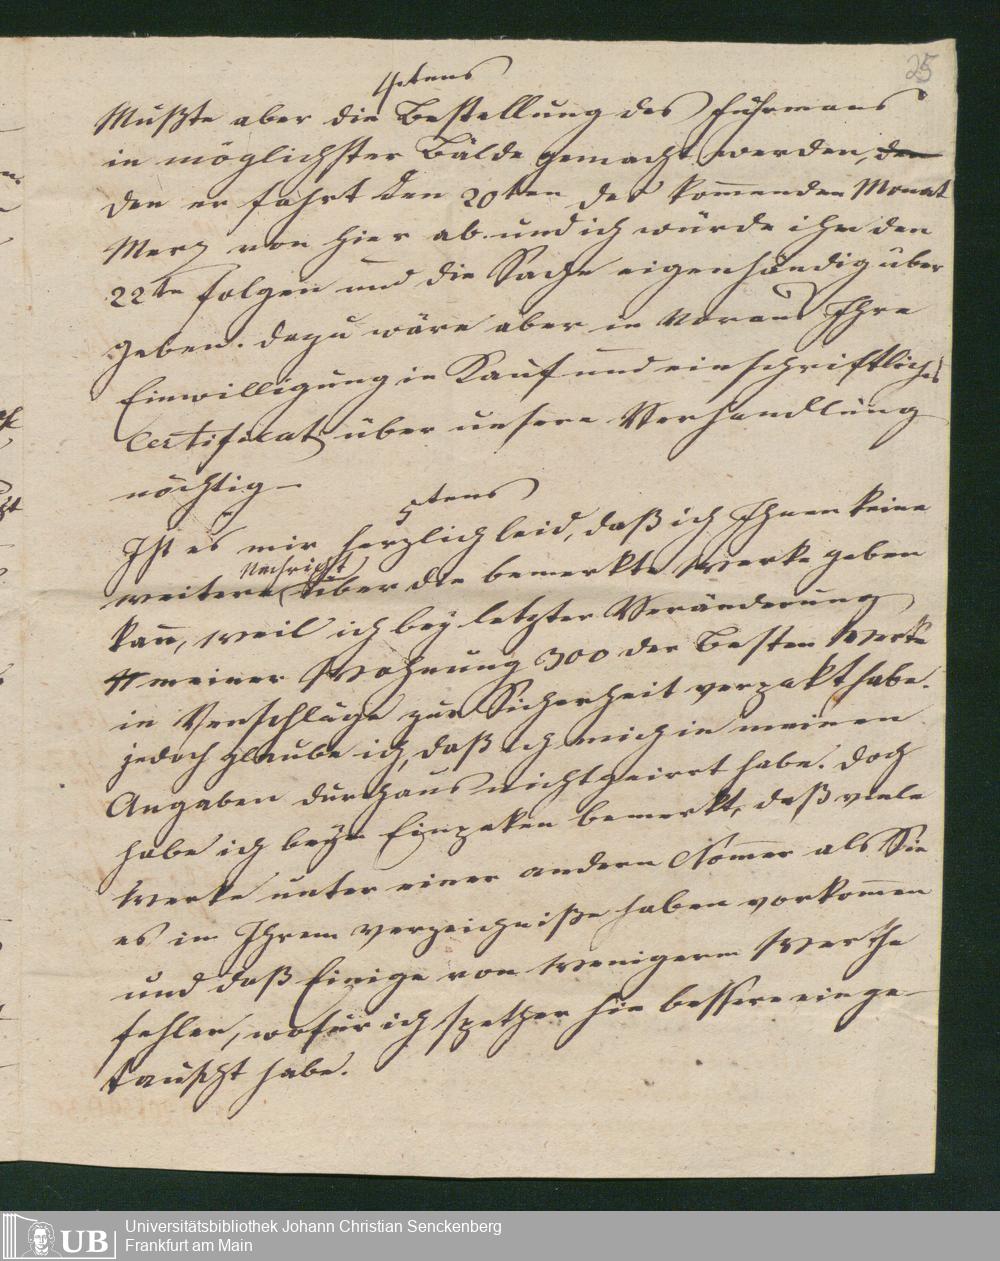 25
4tens
Mußte aber die Bestellung des Fuhrmans
in möglichster Bälde gemacht werden, den
den er fahrt den 20ten des kom̄enden Monat
Merz von hier ab und ich würde ihm den
22te folgen und die Sache eigenhändig über
geben. dazu wäre aber in Voraus Ihre
Einwilligung in Kauf und ein schriftliches
Certificat über unsere Verhandllung
nöthig –
5tens
Ist es mir herzlich leid, daß ich Ihnen keine
weitere Nachricht über die bemerkte Werke geben
kan̄, weil ich bey letzter Veränderung
meiner Wohnung 300 der Besten Werke
in Verschläge zur Sicherheit verpakt habe.
jedoch glaube ich, daß ich mich in meinen
Angaben durchaus nicht geirrt habe. doch
habe ich beym Einpaken bemerkt, daß viele
Werke unter einer andern Nom̄er als Sie
es in Ihrem Verzeichniße haben vorkom̄en
und daß Einige von wenigerm Werthe
fehlen, wofür ich spether hin bessere einge-
tauscht habe.
UB
Universitätsbibliothek Johann Christian Senckenberg
Frankfurt am Main